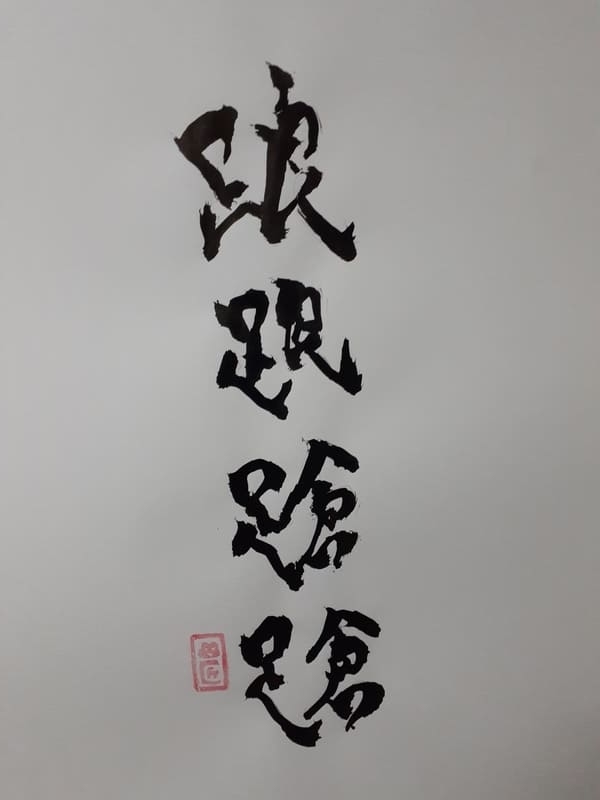 踉踉蹌蹌